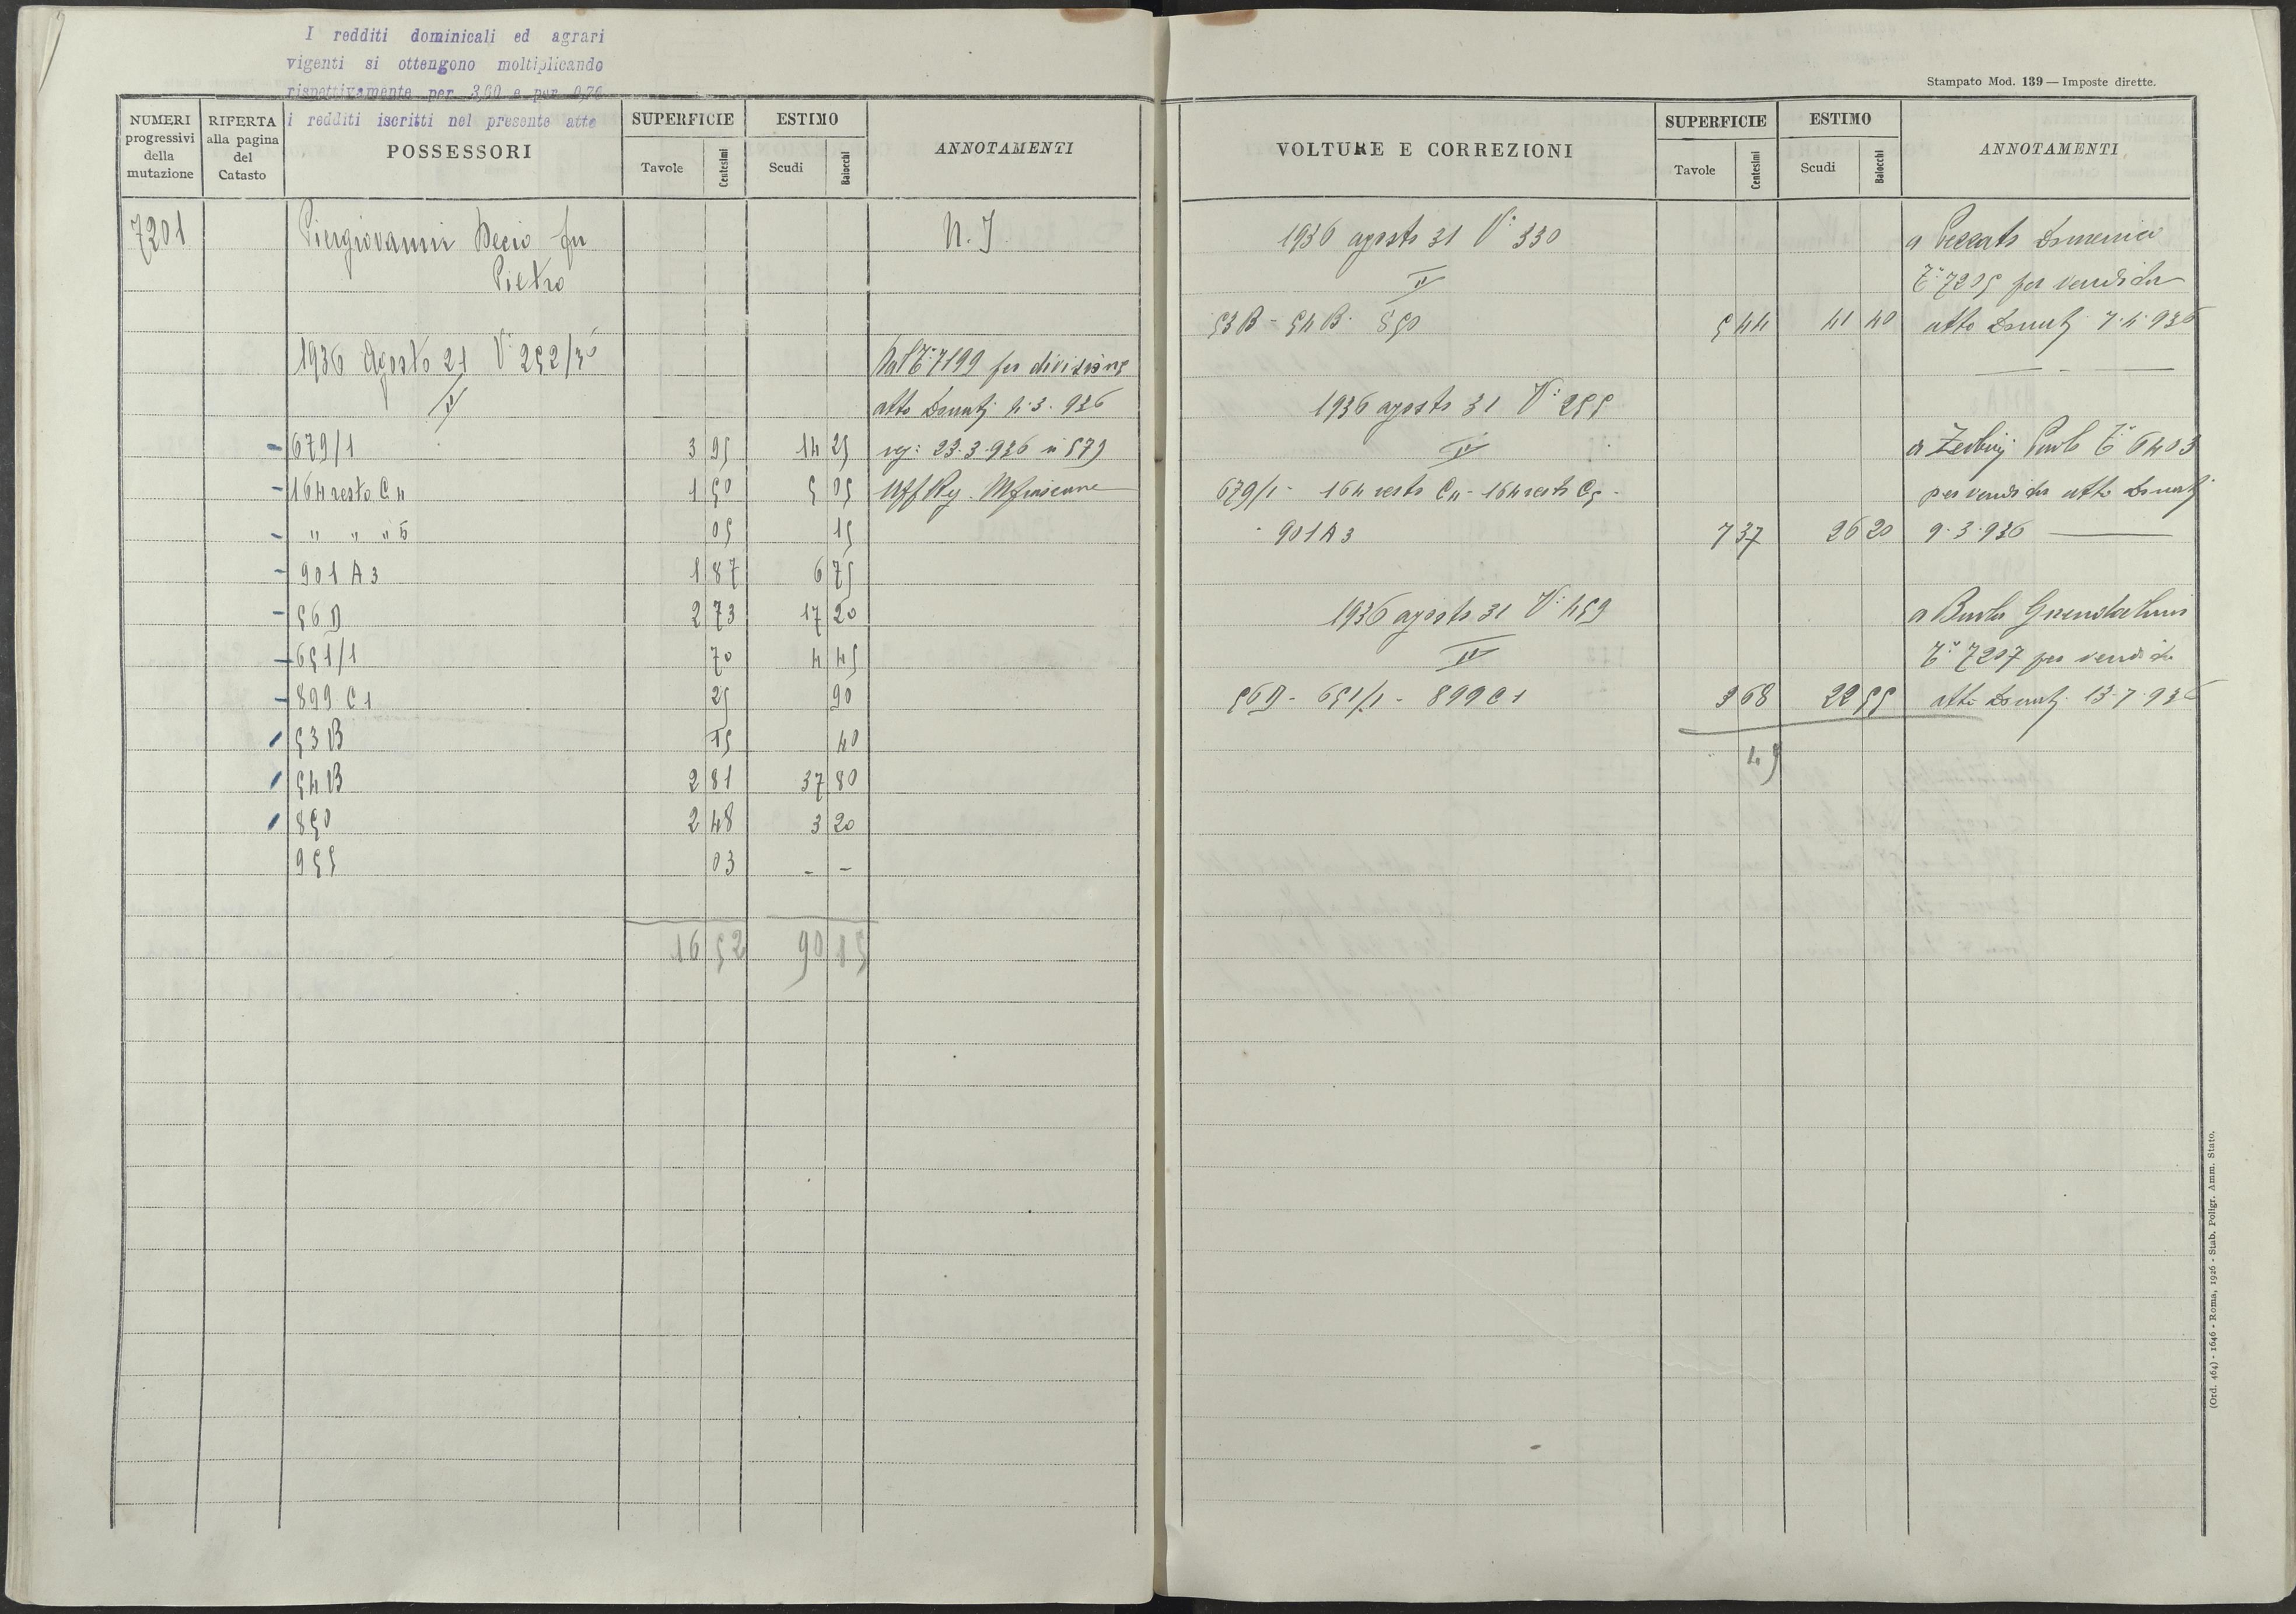 I redditi dominicali ed agrari
vigenti si ottengono moltiplicando
rispettivamente per 3,60 e per 0,76
i redditi iscritti nel presente atto
NUMERI progressivi della mutazione
RIFERTA alla pagina del Catasto
POSSESSORI
SUPERFICIE
Tavole Centesimi
ESTIMO
Scudi Baiocchi
ANNOTAMENTI
7201 Piergiovanni Decio fu N. I
Pietro
1936 Agosto 21 V. 252/30 Dal T. 7199 per divisione
IV atto Donatj 4.3.936
679/1 3 95 14 25 reg: 23.3.936 n 579
164 resto C4 1 50 5 05 Uff Reg.
" " " 5 05 15
901 A3 1 87 6 75
56 D 2 73 17 20
651/1 70 4 45
899 C1 25 90
53 B 15 40
54 B 2 81 37 80
850 2 48 3 20
955 03 - -
16 52 90 15
Stampato Mod. 139 — Imposte dirette.
VOLTURE E CORREZIONI
SUPERFICIE
Tavole Centesimi
ESTIMO
Scudi Baiocchi
ANNOTAMENTI
1936 agosto 31 V. 330 a
IV T. 7205 per vendita
53 B - 54 B. 850 5 44 41 40 atto Donatj 7.4.936
1936 agosto 31 V. 255
IV a Zerbinj Paolo T. 6403
679/1 - 164 resto C4 - 164 resto C5 - per vendita atto Donatj
901 A3 7 37 26 20 9.3.936
1936 agosto 31 V. 459 a
IV T. 7207 per vendita
56 D - 651/1 - 899 C1 3 68 22 55 atto Donatj 13.7.936
49
(Ord. 464) - 1646 - Roma, 1926 - Stab. Poligr. Amm. Stato.